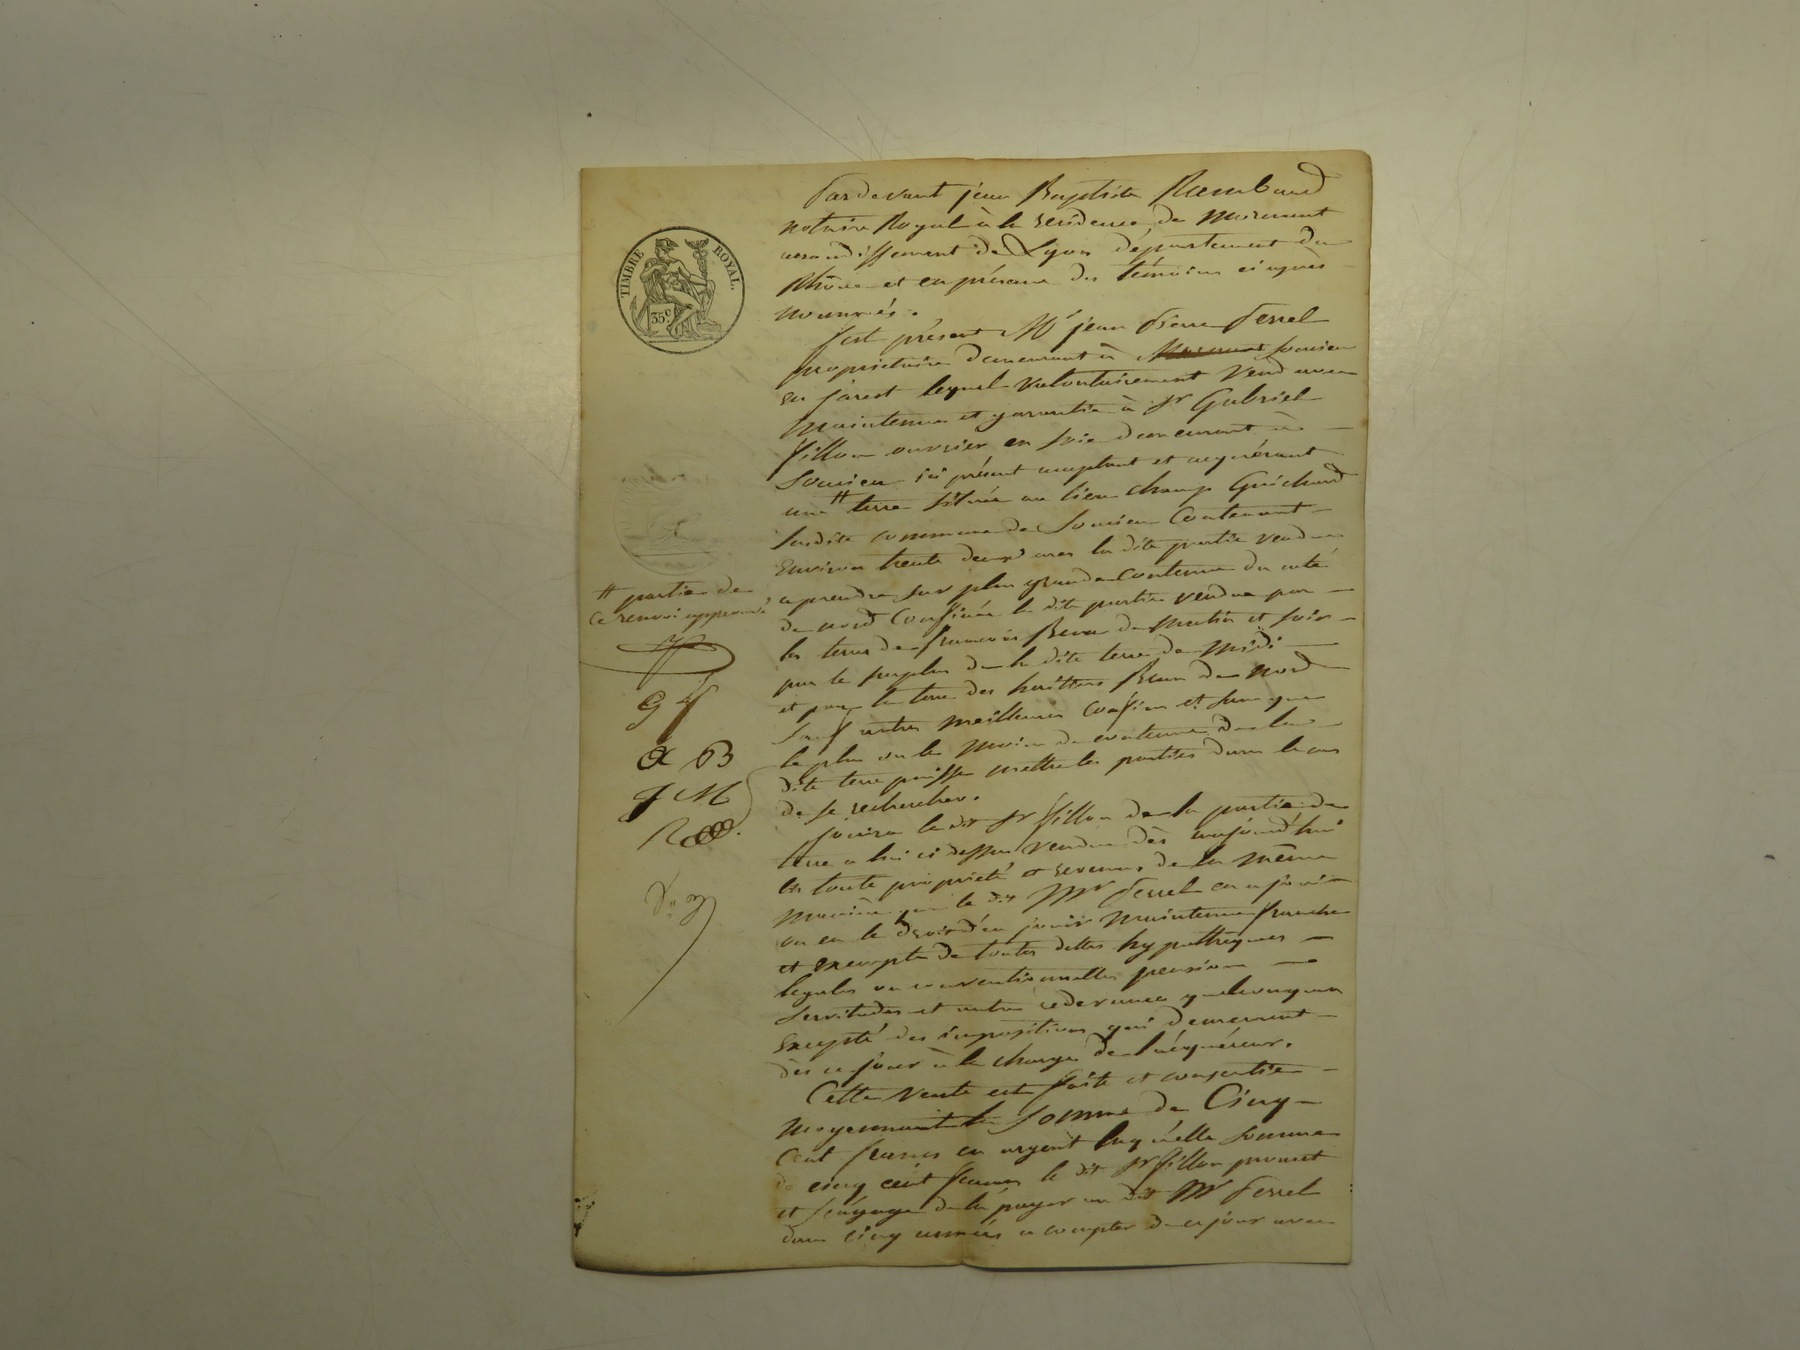 TIMBRE ROYAL.
35c
Pardevant jean Baptiste Rambaud
notaire Royal à la résidence de Mornant
arrondissement de Lyon département du
Rhône et en présence des témoins ci après
nommés.
fut présent Mr jean Pierre Ferrel
propriétaire demeurant à Mornant Soucieu
en jarest lequel volontairement vend avec
maintenue et garantie à Sr Gabriel
fillon ouvrier en soie demeurant à
Soucieu ici présent acceptant et acquérant
une # terre située au lieu champ Guichard
susdite commune de Soucieu Contenant
Environ trente deux ares la dite partie vendue
a prendre sur plus grande Contenue du coté
de nord Confinée la dite partie vendue par
les terres de françois de matin et soir
par le surplus de la dite terre de midi
et par la terre des heritiers de nord
Sauf autres meilleurs confins et sans que
le plus ou le moins de contenue de la
dite terre puisse mettre les parties dans le cas
de se rechercher.
jouira le dit Sr fillon de la partie de
terre a lui ci dessus vendue dès aujourd'hui
en toute propriété et revenus de la même
manière que le dit Mr Ferrel en a joui
ou eu le droit d'en jouir maintenue franche
et exempte de toutes dettes hypothèques
légales ou conventionnelles pension
servitudes et autre redevance quelconque
Excepté des impositions qui demeurent
dès ce jour à la charge de l'acquéreur.
Cette vente est faite et consentie
moyennant la somme de Cinq
Cent francs en argent laquelle somme
de cinq cent francs le dit Sr fillon promet
et s'engage de la payer au dit Mr Ferrel
dans cinq années a compter de ce jour avec
# partie de
ce renvoi approuvé
G f
B
J M
R